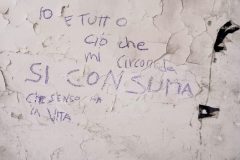 IO E TUTTO
CIÒ che
mi circonda
SI CONSUMA
CHE SENSO HA
LA VITA